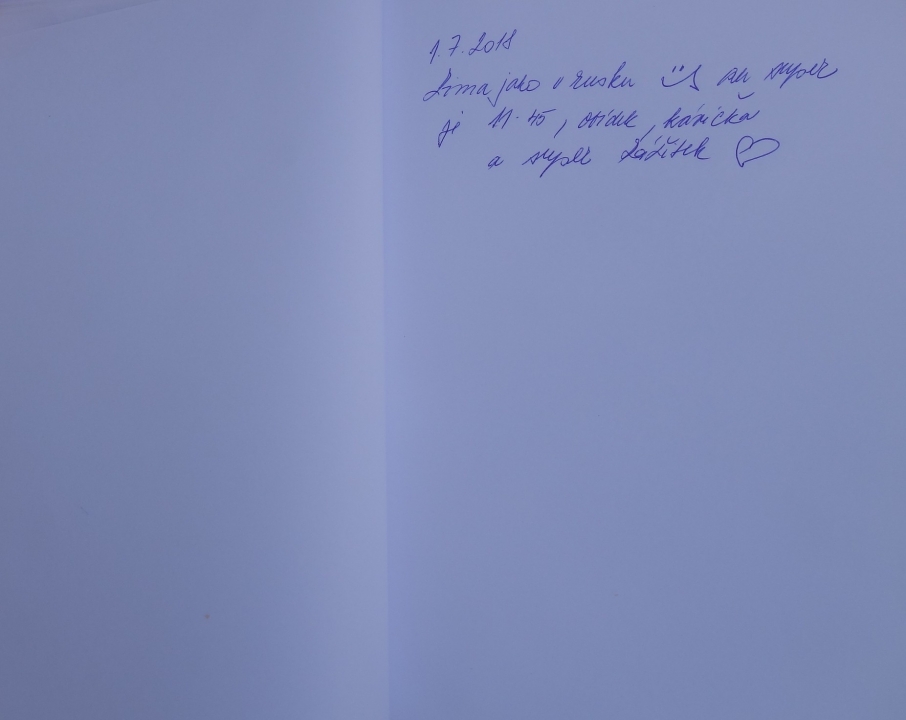 1.7.2018
Zima jako v rusku au super
je 11.45, obídek, kávička
a super zážitek ♡